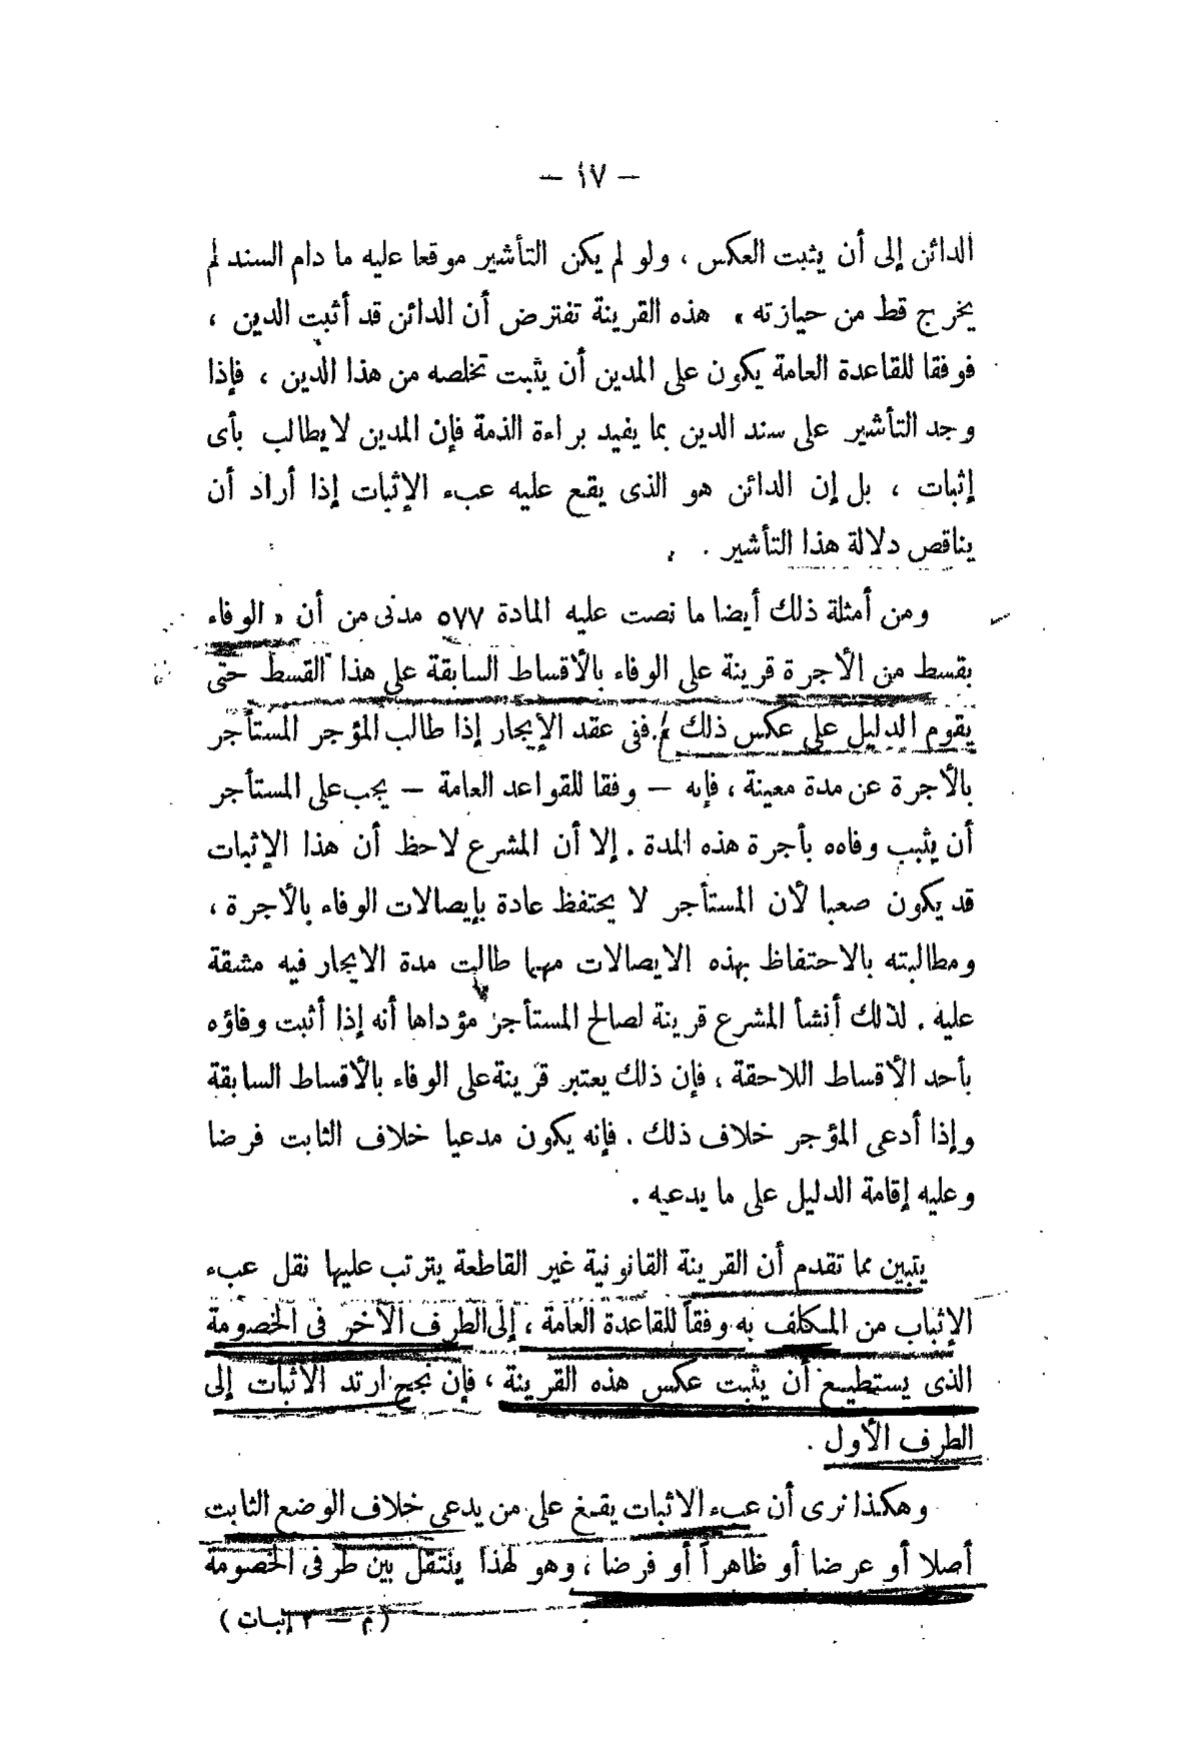 — ١٧ —
الدائن إلى أن يثبت العكس ، ولو لم يكن التأشير موقعا عليه ما دام السند لم
يخرج قط من حيازته » هذه القرينة تفترض أن الدائن قد أثبت الدين ،
فوفقا للقاعدة العامة يكون على المدين أن يثبت تخلصه من هذا الدين ، فإذا
وجد التأشير على سند الدين بما يفيد براءة الذمة فإن المدين لا يطالب بأى
إثبات ، بل إن الدائن هو الذى يقع عليه عبء الإثبات إذا أراد أن
يناقص دلالة هذا التأشير .
ومن أمثلة ذلك أيضا ما نصت عليه المادة ٥٧٧ مدنى من أن « الوفاء
بقسط من الأجرة قرينة على الوفاء بالأقساط السابقة على هذا القسط حتى
يقوم الدليل على عكس ذلك » . ففى عقد الإيجار إذا طالب المؤجر المستأجر
بالأجرة عن مدة معينة ، فإنه — وفقا للقواعد العامة — يجب على المستأجر
أن يثبب وفاءه بأجرة هذه المدة . إلا أن المشرع لاحظ أن هذا الإثبات
قد يكون صعبا لأن المستأجر لا يحتفظ عادة بإيصالات الوفاء بالأجرة ،
ومطالبته بالاحتفاظ بهذه الايصالات مهما طالت مدة الايجار فيه مشقة
عليه . لذلك أنشأ المشرع قرينة لصالح المستأجر مؤداها أنه إذا أثبت وفاؤه
بأحد الأقساط اللاحقة ، فإن ذلك يعتبر قرينة على الوفاء بالأقساط السابقة
وإذا أدعى المؤجر خلاف ذلك . فإنه يكون مدعيا خلاف الثابت فرضا
وعليه إقامة الدليل على ما يدعيه .
يتبين مما تقدم أن القرينة القانونية غير القاطعة يترتب عليها نقل عبء
الإثباب من المكلف به وفقاً للقاعدة العامة ، إلى الطرف الآخر فى الخصومة
الذى يستطيع أن يثبت عكس هذه القرينة ، فإن نجح ارتد الاثبات إلى
الطرف الأول .
وهكذا نرى أن عبء الاثبات يقع على من يدعى خلاف الوضع الثابت
أصلا أو عرضا أو ظاهراً أو فرضا ، وهو لهذا ينتقل بين طرفى الخصومة
( م — ٢ إثبات )